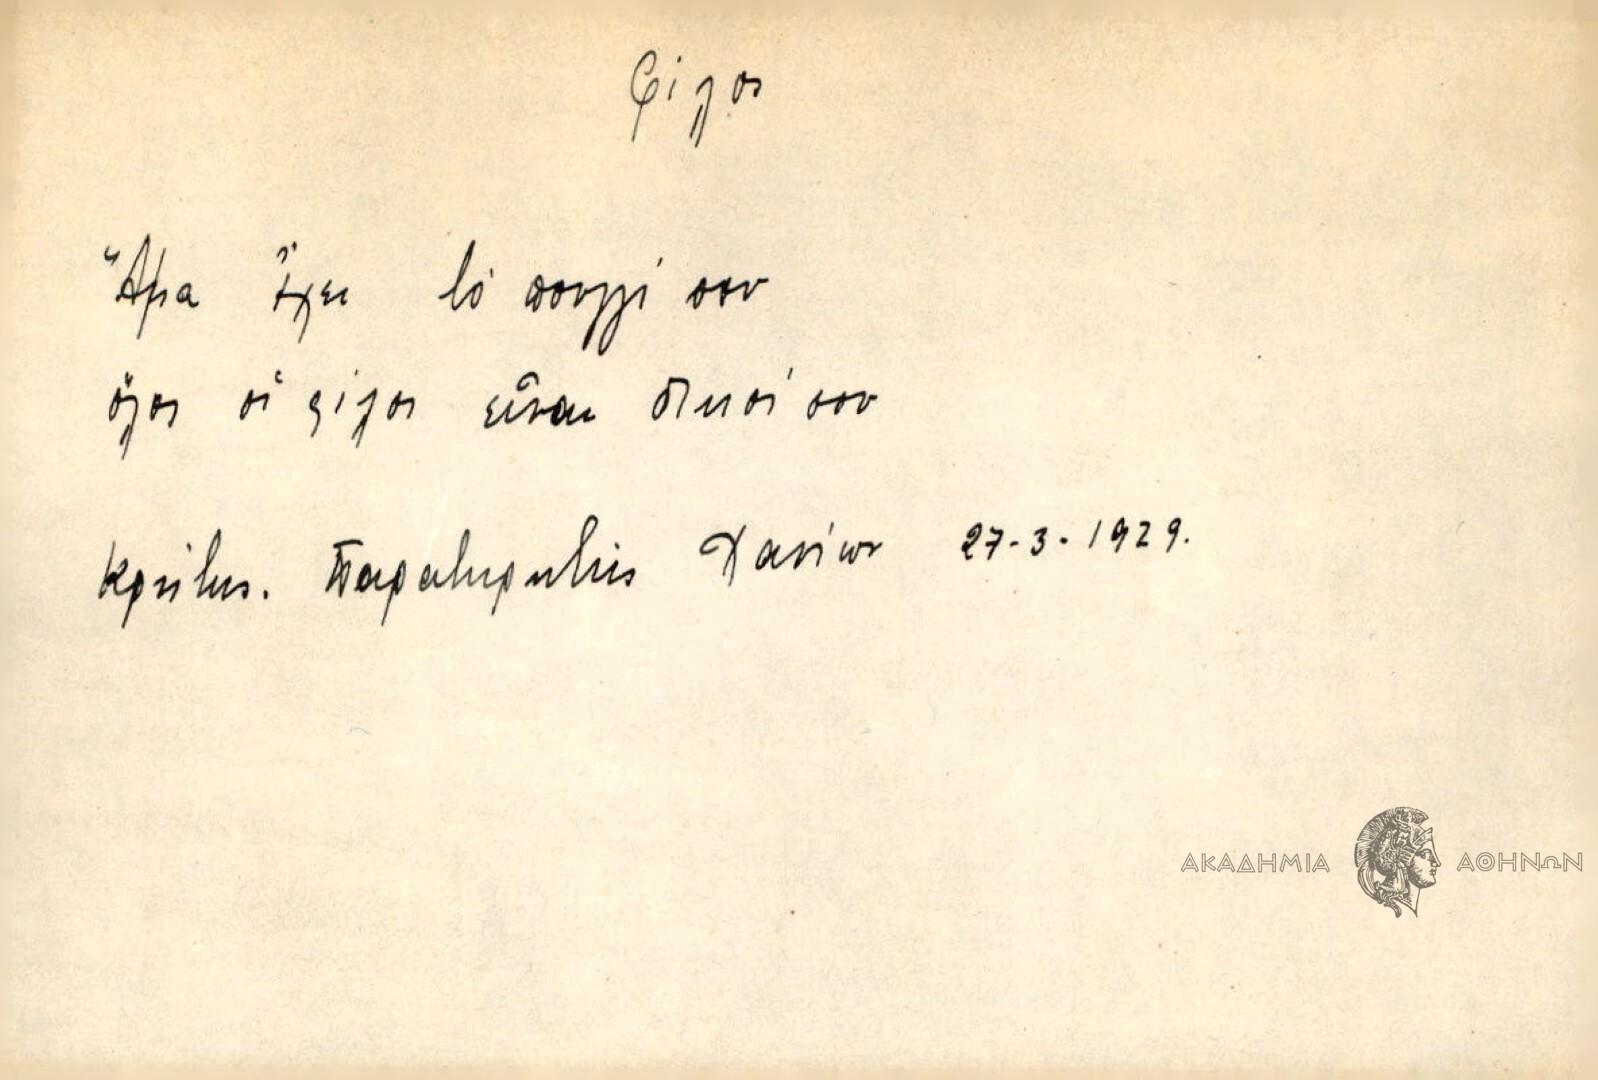 φίλος
Ἅμα ἔχει τὸ πουγγί σου
ὅλοι οἱ φίλοι εἶναι δικοί σου
Κρήτης. Παρατηρητὴς Χανίων 27-3-1929.
ΑΚΑΔΗΜΙΑ ΑΘΗΝΩΝ